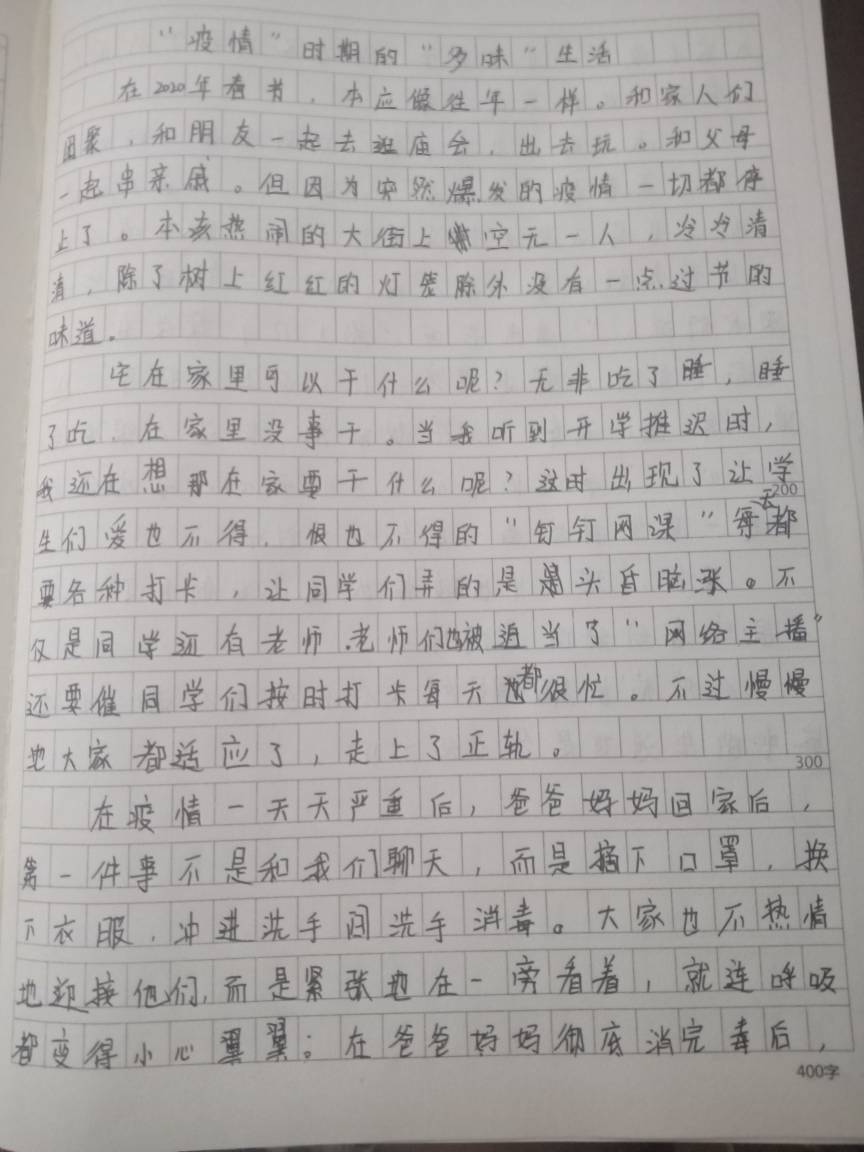 “疫情”时期的“多味”生活
在2020年春节，本应像往年一样。和家人们
团聚，和朋友一起去逛庙会，出去玩。和父母
一起串亲戚。但因为突然爆发的疫情一切都停
止了。本该热闹的大街上空无一人，冷冷清
清，除了树上红红的灯笼除外没有一点过节的
味道。
宅在家里可以干什么呢？无非吃了睡，睡
了吃，在家里没事干。当我听到开学推迟时，
我还在想那在家要干什么呢？这时出现了让学
200
生们爱也不得，恨也不得的“钉钉网课”每天都
要各种打卡，让同学们弄的是头昏脑涨。不
仅是同学还有老师，老师们也被迫当了“网络主播”
还要催同学们按时打卡每天都很忙。不过慢慢
地大家都适应了，走上了正轨。
300
在疫情一天天严重后，爸爸妈妈回家后，
第一件事不是和我们聊天，而是摘下口罩，换
下衣服，冲进洗手间洗手消毒。大家也不热情
地迎接他们，而是紧张地在一旁看着，就连呼吸
都变得小心翼翼；在爸爸妈妈彻底消完毒后，
400字